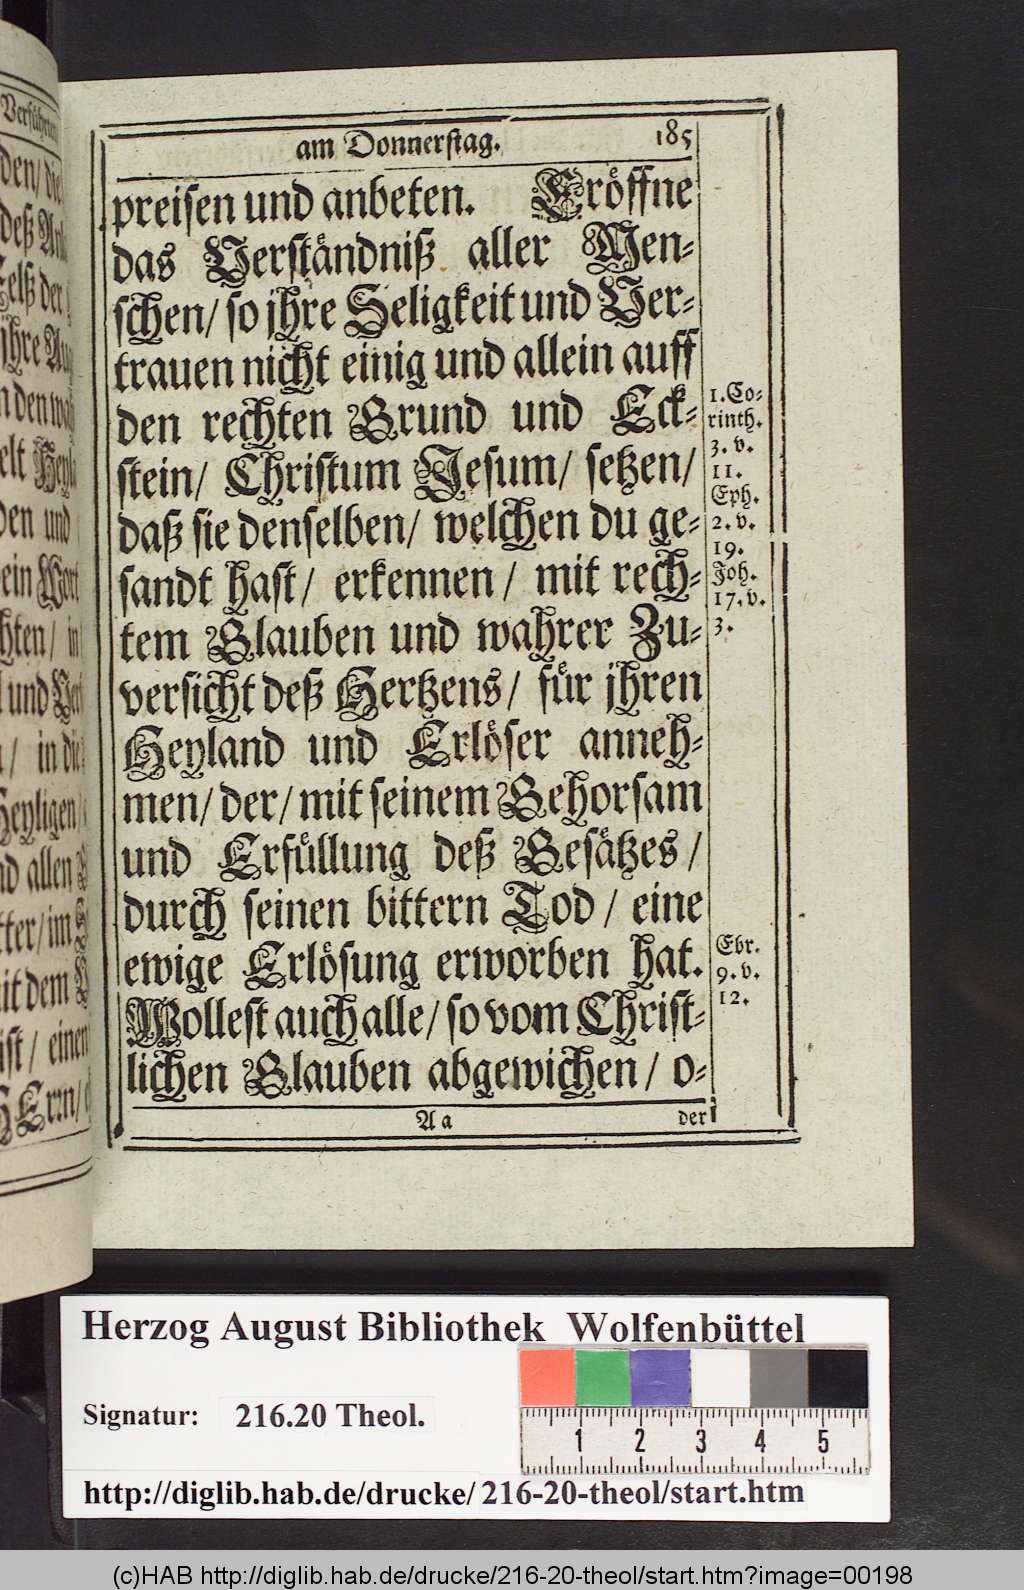 Verführten
den/ die
deß
Felß der
jhre
n den
elt Heyl
den und
ein Wort
hten/ in
l und
n/ in die
Heyligen/
nd allen
tter/ im
it dem
ist/ einen
HErrn/
am Donnerstag. 185
preisen und anbeten. Eröffne
das Verständniß aller Men-
schen/ so jhre Seligkeit und Ver-
trauen nicht einig und allein auff
den rechten Grund und Eck-
stein/ Christum Jesum/ setzen/
daß sie denselben/ welchen du ge-
sandt hast/ erkennen/ mit rech-
tem Glauben und wahrer Zu-
versicht deß Hertzens/ für jhren
Heyland und Erlöser anneh-
men/ der/ mit seinem Gehorsam
und Erfüllung deß Gesätzes/
durch seinen bittern Tod/ eine
ewige Erlösung erworben hat.
Wollest auch alle/ so vom Christ-
lichen Glauben abgewichen/ o-
1. Co-
rinth.
3. v.
11.
Eph.
2. v.
19.
Joh.
17. v.
3.
Ebr.
9. v.
12.
Aa der
Herzog August Bibliothek Wolfenbüttel
Signatur: 216.20 Theol.
1 2 3 4 5
http://diglib.hab.de/drucke/216-20-theol/start.htm
(c)HAB http://diglib.hab.de/drucke/216-20-theol/start.htm?image=00198